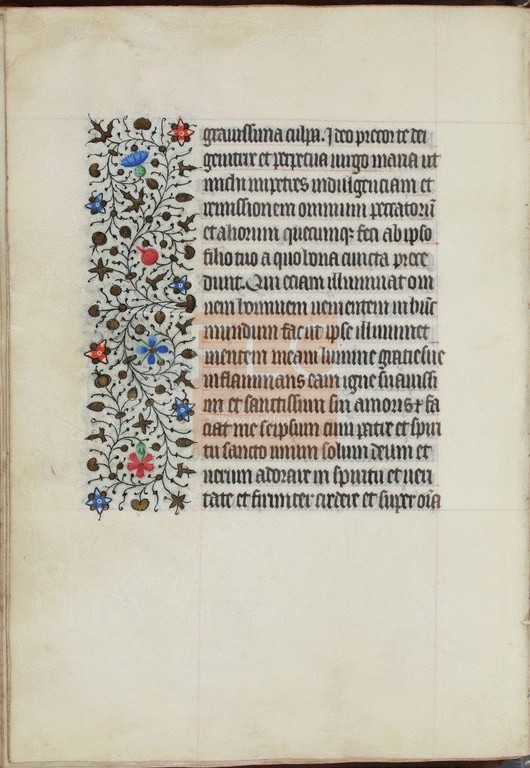 grauissima culpa. Ideo precor te dei
genitrix et perpetua uirgo maria ut
michi impetres indulgenciam et
remissionem omnium peccatorū
et aliorum quecumqꝫ feci ab ipso
filio tuo a quo bona cuncta proce
dunt. Qui eciam illuminat om
nem hominem uenientem in hūc
mundum faciat ipse illuminet
mentem meam lumine gracie sue
inflammans eam igne suauissi
mi et sanctissimi sui amoris ⁊ fa
ciat me seipsum cum patre et spiri
tu sancto unum solum deum et
uerum adorare in spiritu et ueri
tate et firmiter credere et super oīa